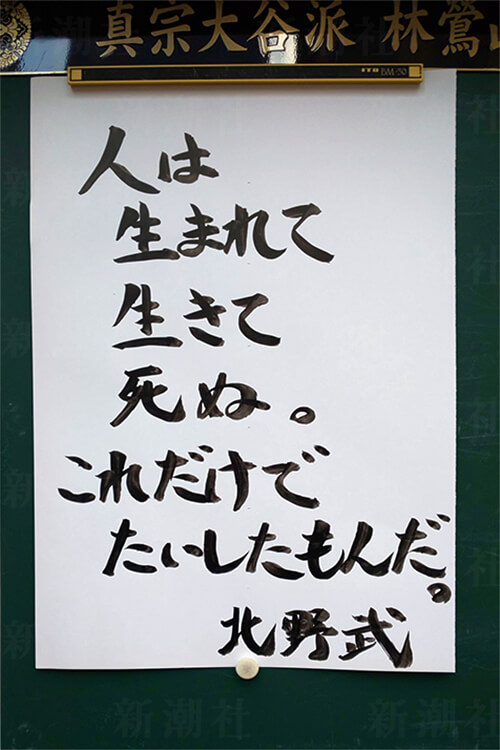 真宗大谷派 林鶯山
ITO BM-50
人は
生まれて
生きて
死ぬ。
これだけで
たいしたもんだ。
北野武
新潮社
新潮社